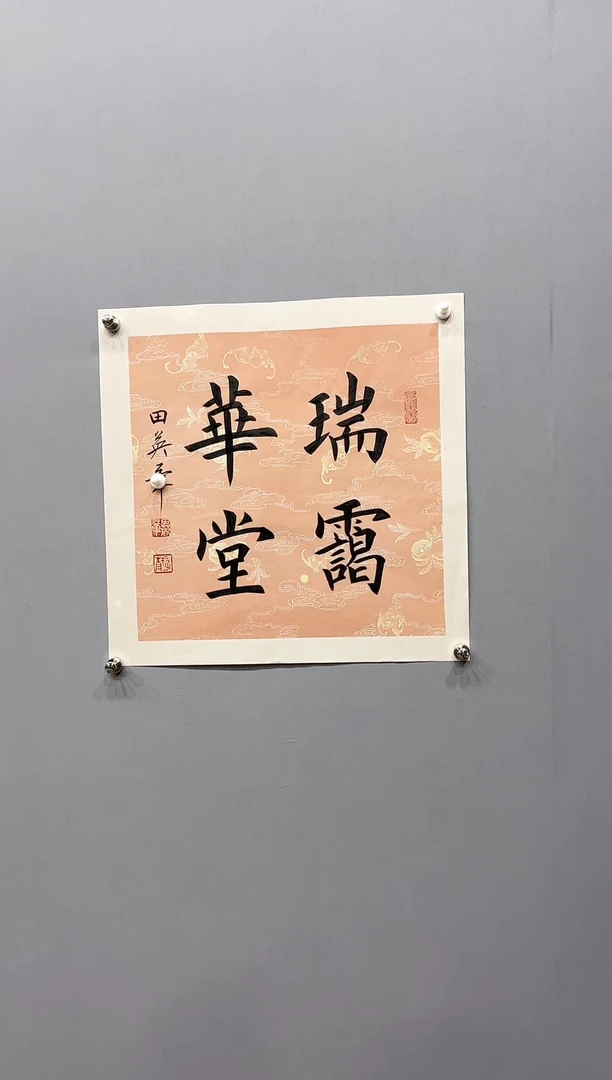 瑞靄
華堂
田英章